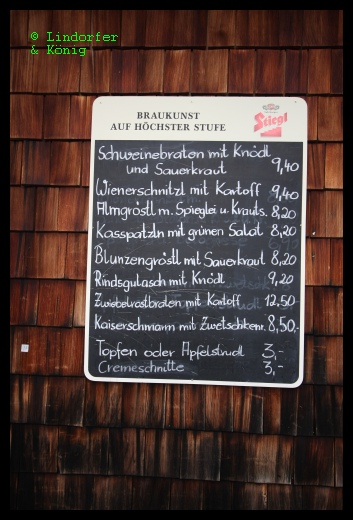 © Lindorfer
& König
BRAUKUNST
AUF HÖCHSTER STUFE
Stiegl
Schweinebraten mit Knödl
und Sauerkraut 9,40
Wienerschnitzl mit Kartoff 9,40
Almgröstl m. Spieglei u. Krauts. 8,20
Kasspatzln mit grünen Salat 8,20
Blunzengröstl mit Sauerkraut 8,20
Rindsgulasch mit Knödl 9,20
Zwiebelrostbraten mit Kartoff 12,50
Kaiserschmarrn mit Zwetschkenr. 8,50,-
Topfen oder Apfelstrudl 3,-
Cremeschnitte 3,-